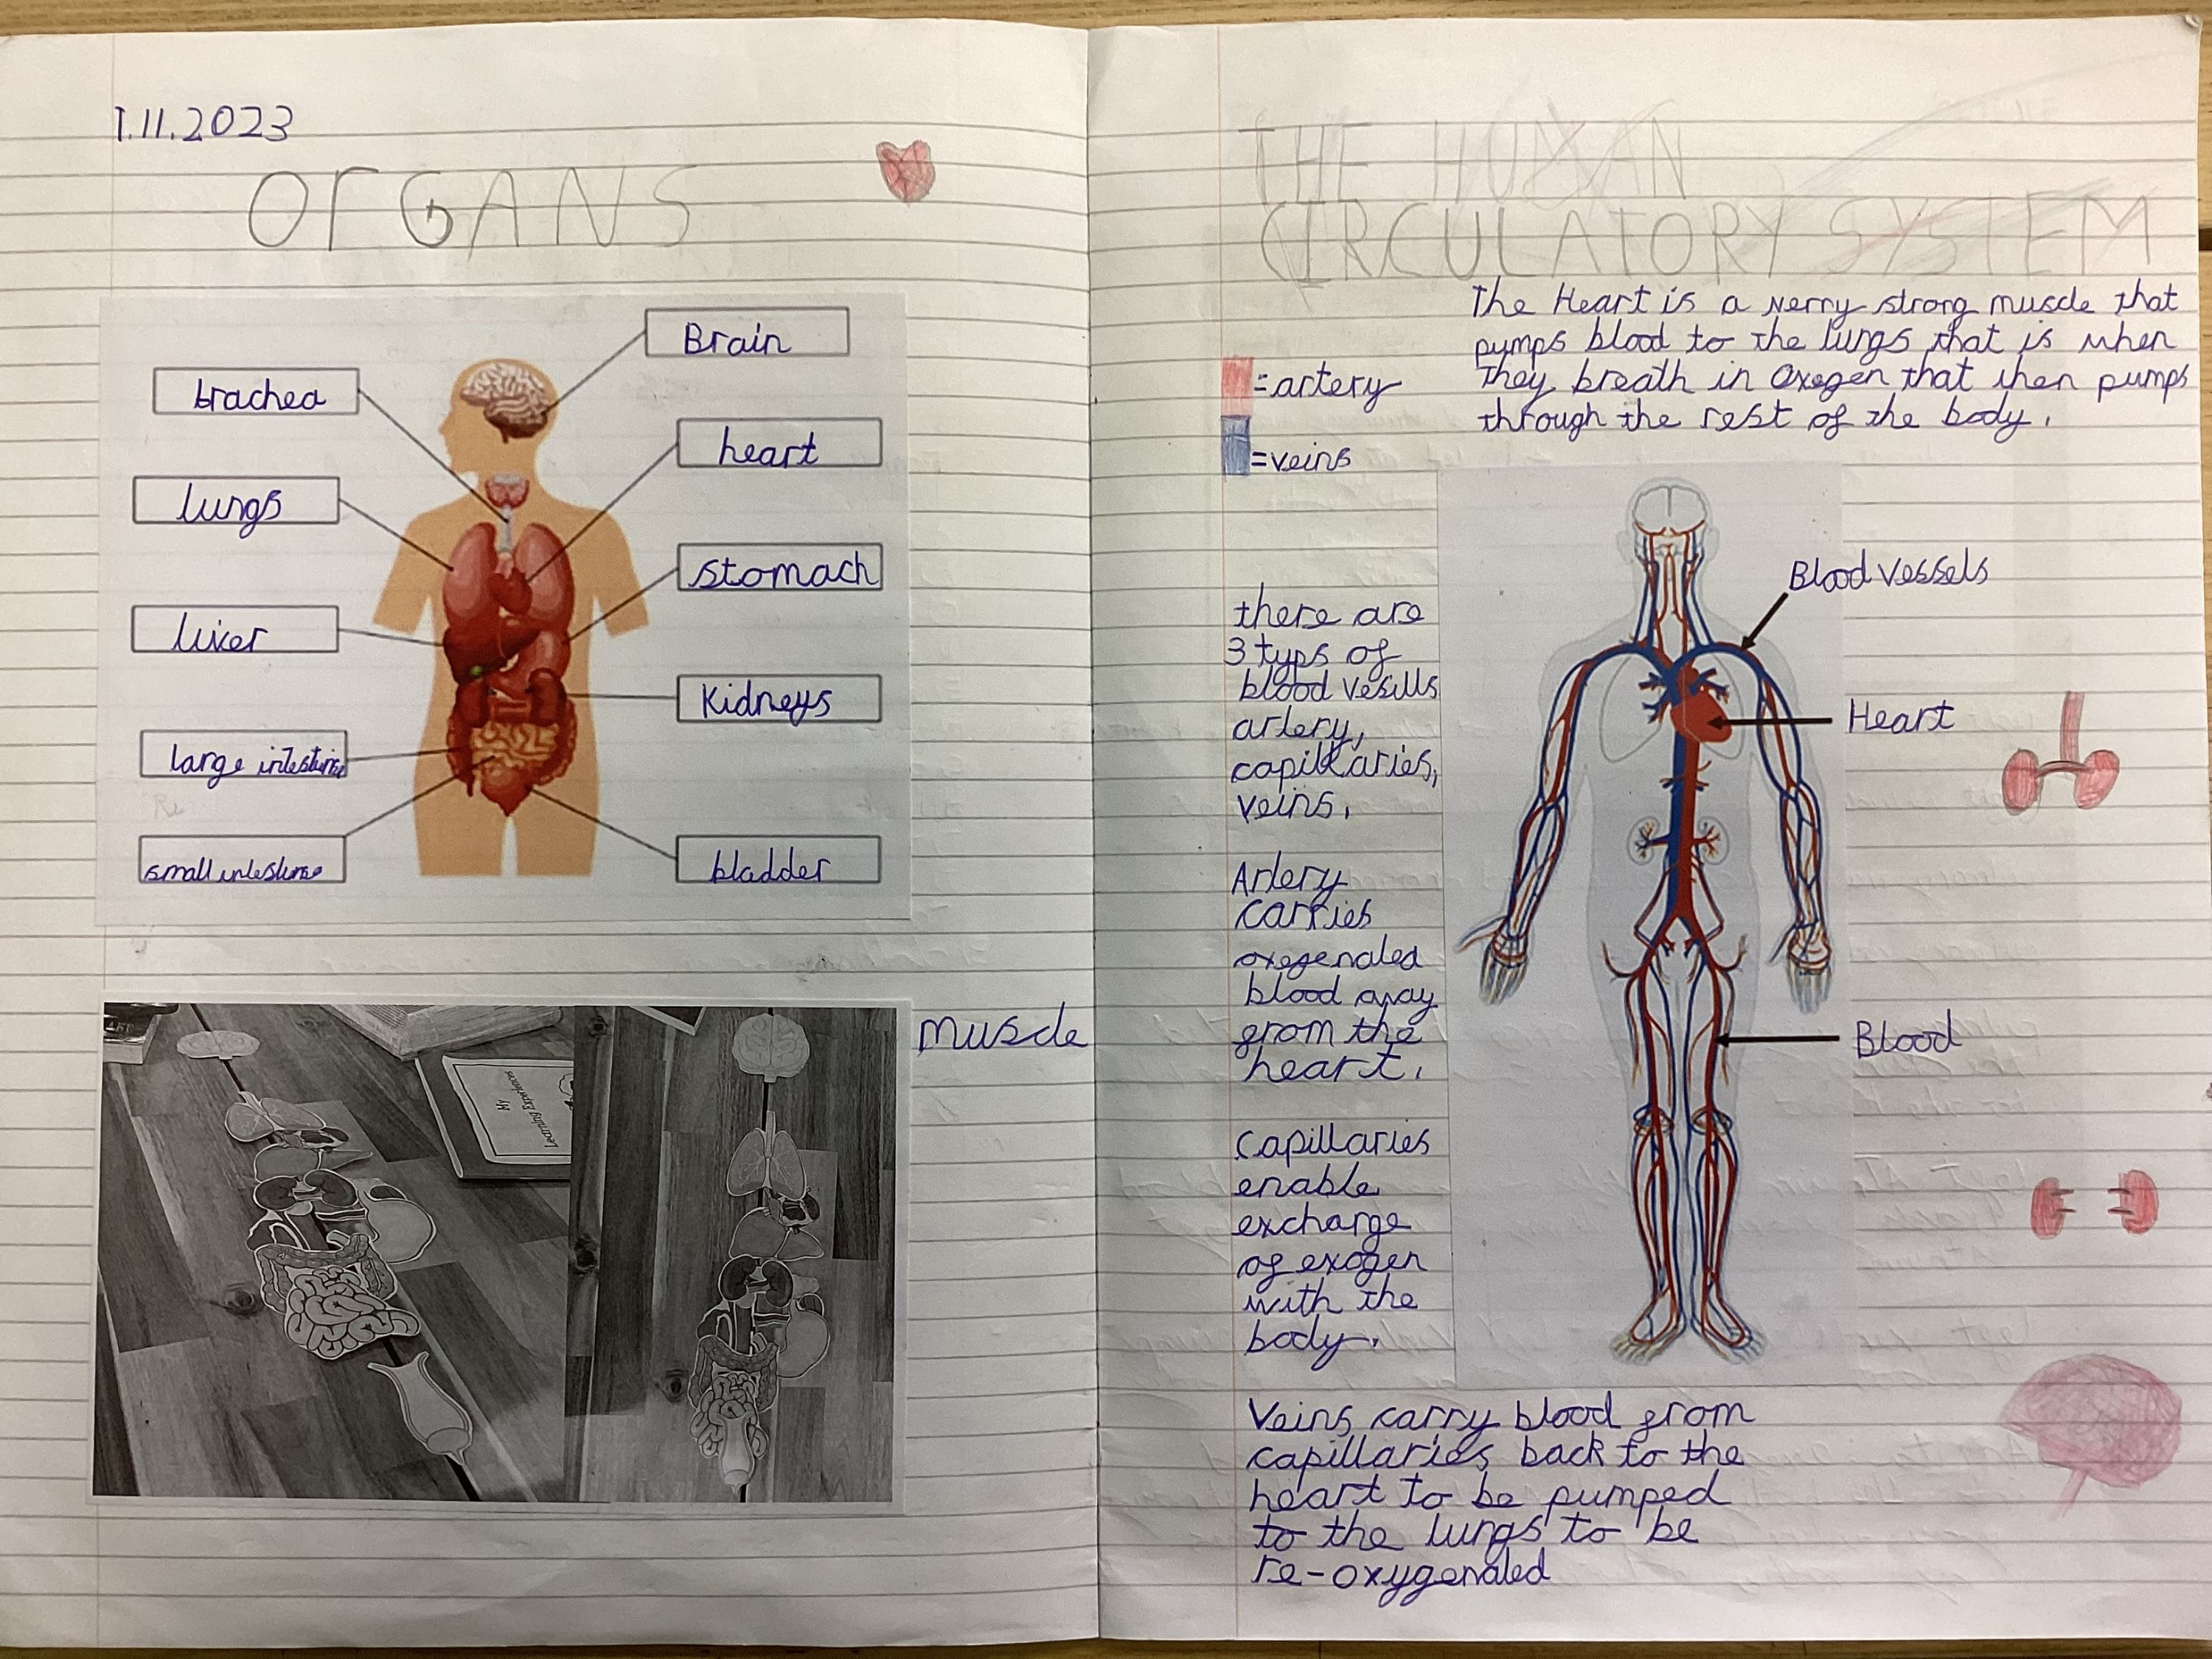 1.11.2023
ORGANS
Brain
trachea
heart
lungs
stomach
liver
Kidneys
large intestine
small intestine
bladder
muscle
My
Learning Experiences
THE HUMAN
CIRCULATORY SYSTEM
The Heart is a verry strong muscle that
pumps blood to the lungs that is when
they breath in Oxegen that then pumps
through the rest of the body.
=artery
=veins
there are
3 typs of
blood vesills
artery,
capillaries,
veins.
Artery
carries
oxegenated
blood away
from the
heart.
Capillaries
enable
exchange
of exogen
with the
body.
Veins carry blood from
capillaries back to the
heart to be pumped
to the lungs to be
re-oxygenated
Blood vessels
Heart
Blood